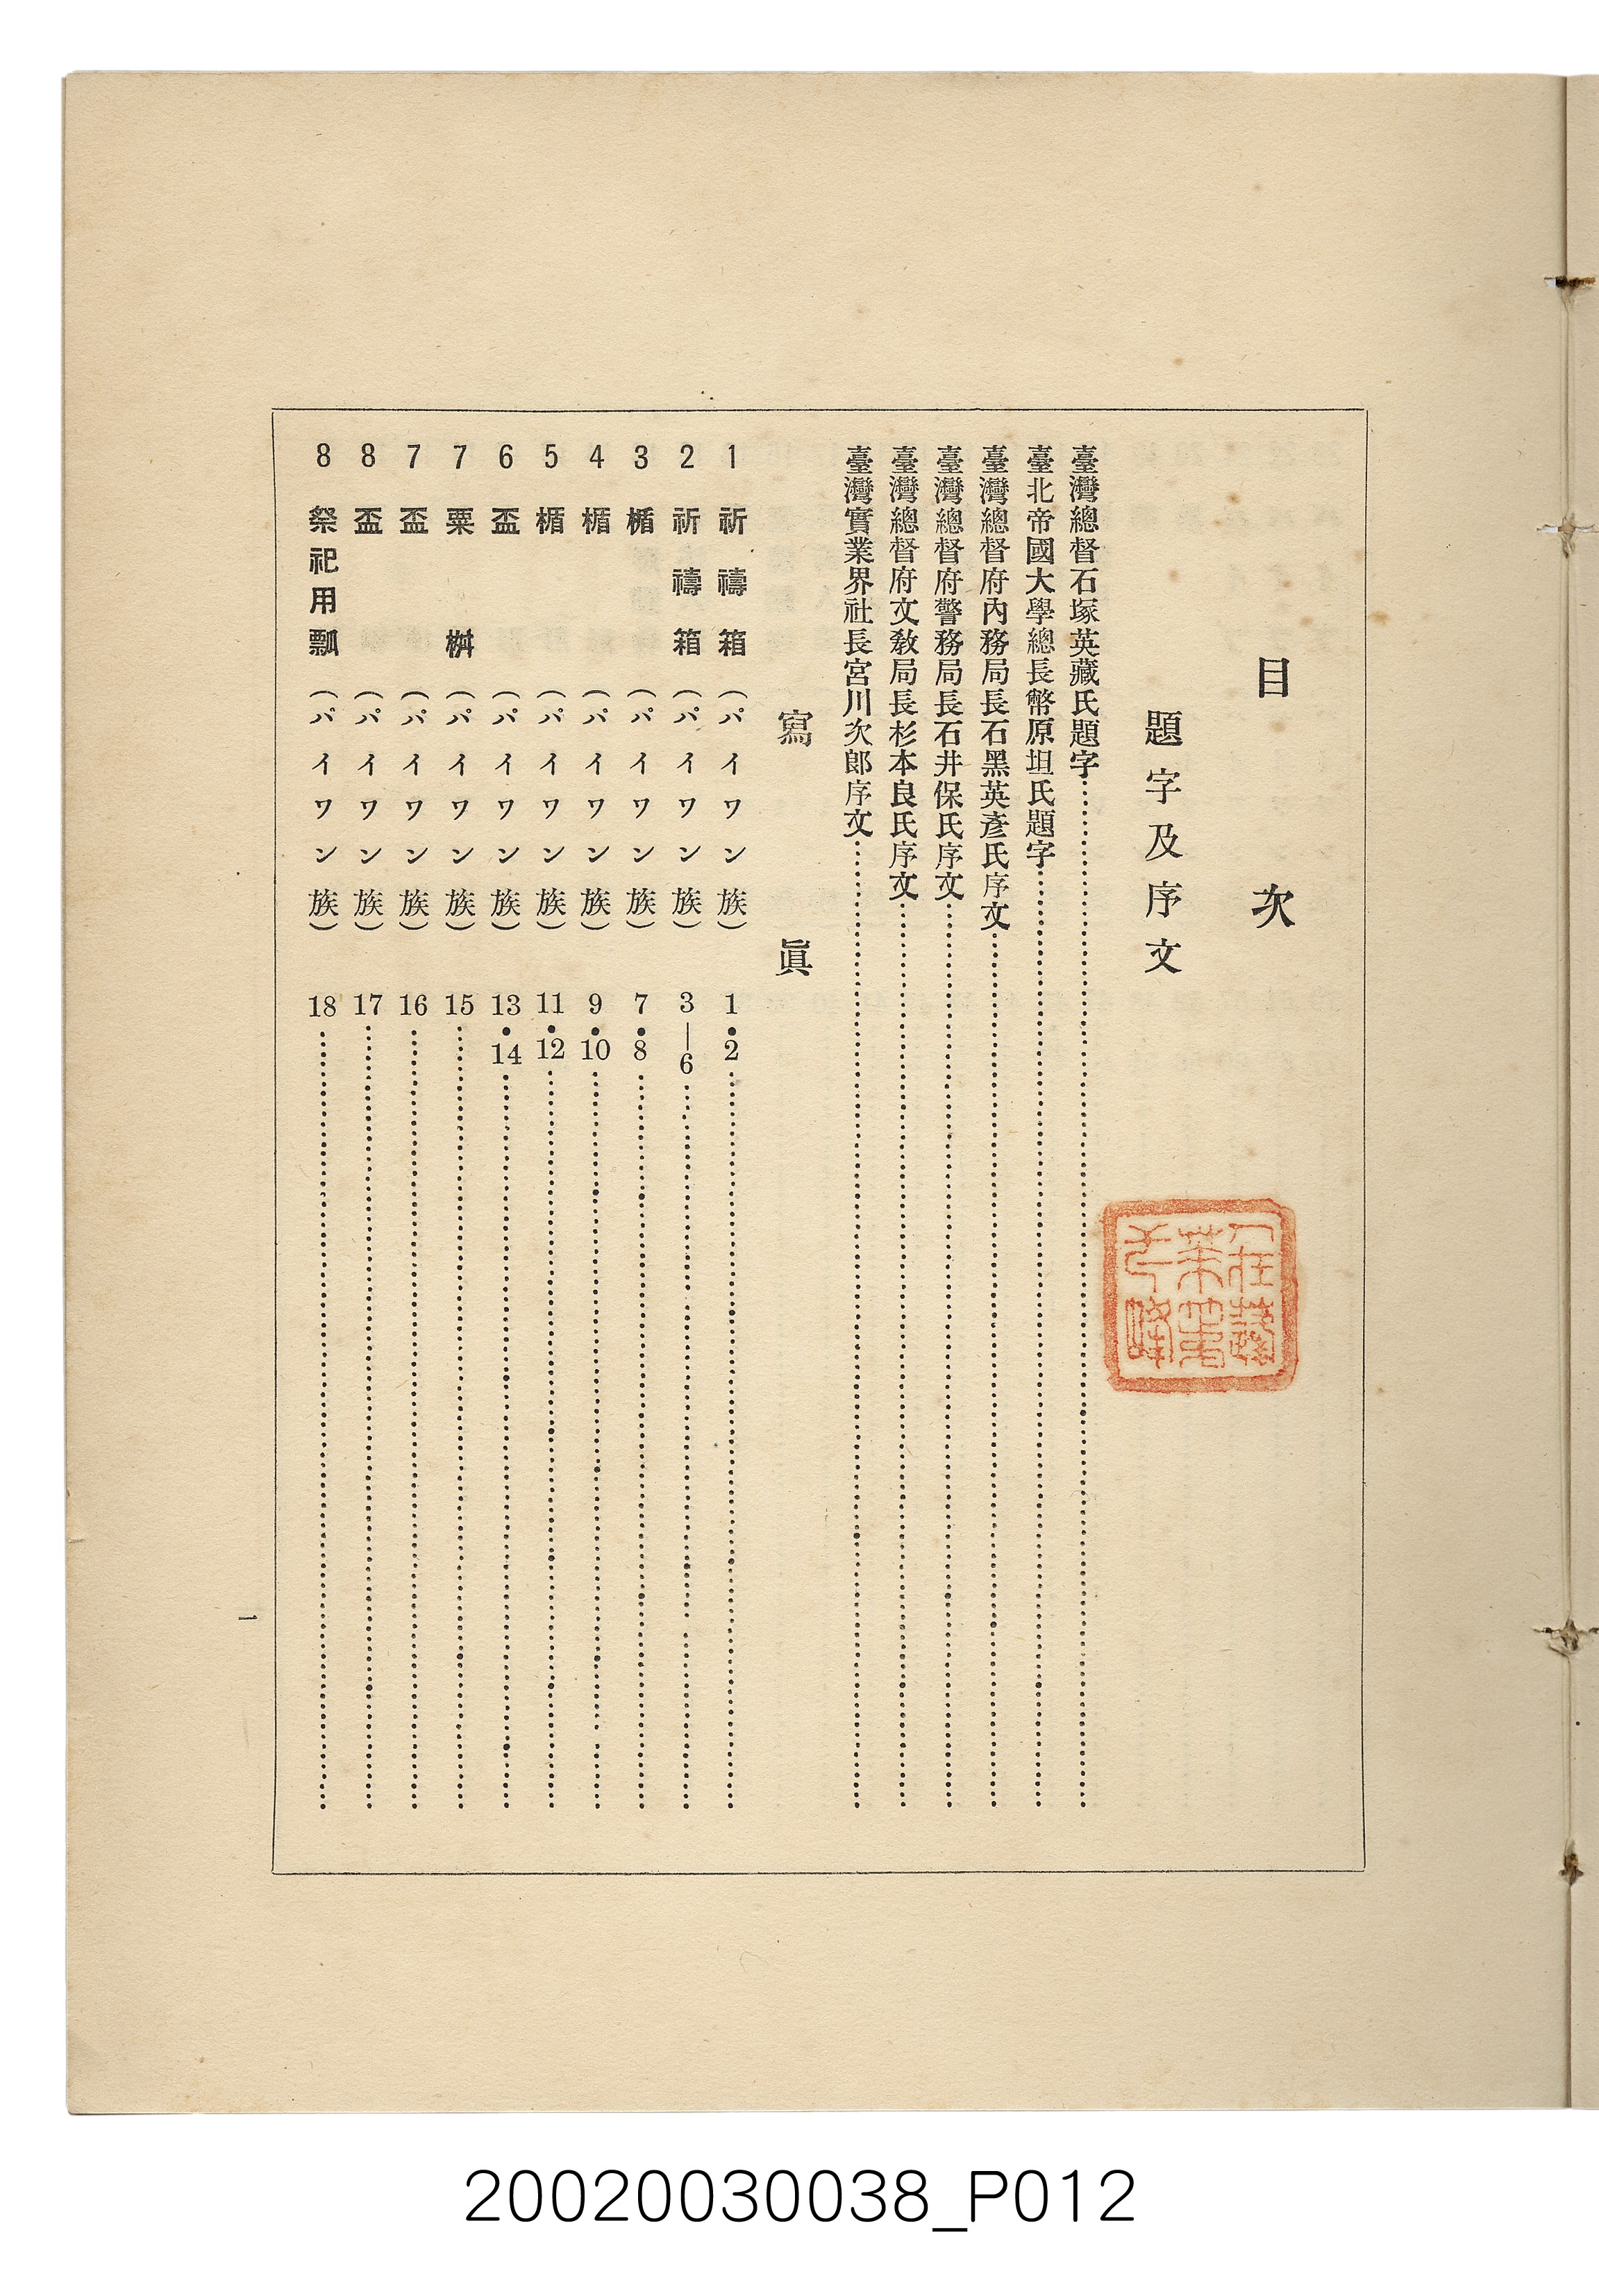 目次
題字及序文
臺灣總督石塚英藏氏題字
臺北帝國大學總長幣原坦氏題字
臺灣總督府內務局長石黑英彥氏序文
臺灣總督府警務局長石井保氏序文
臺灣總督府文敎局長杉本良氏序文
臺灣實業界社長宮川次郎序文
寫眞
1 祈禱箱（パイワン族） 1•2
2 祈禱箱（パイワン族） 3—6
3 楯（パイワン族） 7•8
4 楯（パイワン族） 9•10
5 楯（パイワン族） 11•12
6 盃（パイワン族） 13•14
7 粟桝（パイワン族） 15
7 盃（パイワン族） 16
8 盃（パイワン族） 17
8 祭祀用瓢（パイワン族） 18
一
20020030038_P012